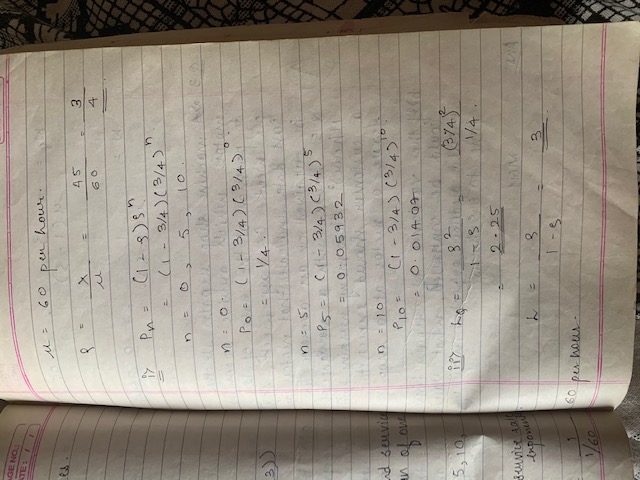 AGE NO.:
ATE: / /
es.
3))
nd service
an of one
5, 10,
service rate
exponen
= 1/1/60 = 60 per hour.
μ = 60 per hour.
ρ = λ/μ = 45/60 = 3/4
i> Pn = (1 - ρ)ρ^n
= (1 - 3/4)(3/4)^n
n = 0, 5, 10.
n = 0.
P0 = (1 - 3/4)(3/4)^0.
= 1/4.
n = 5
P5 = (1 - 3/4)(3/4)^5
= 0.05932
n = 10
P10 = (1 - 3/4)(3/4)^10.
= 0.01407
ii> Lq = ρ^2/1 - ρ = (3/4)^2/1/4.
= 2.25
L = ρ/1 - ρ = 3